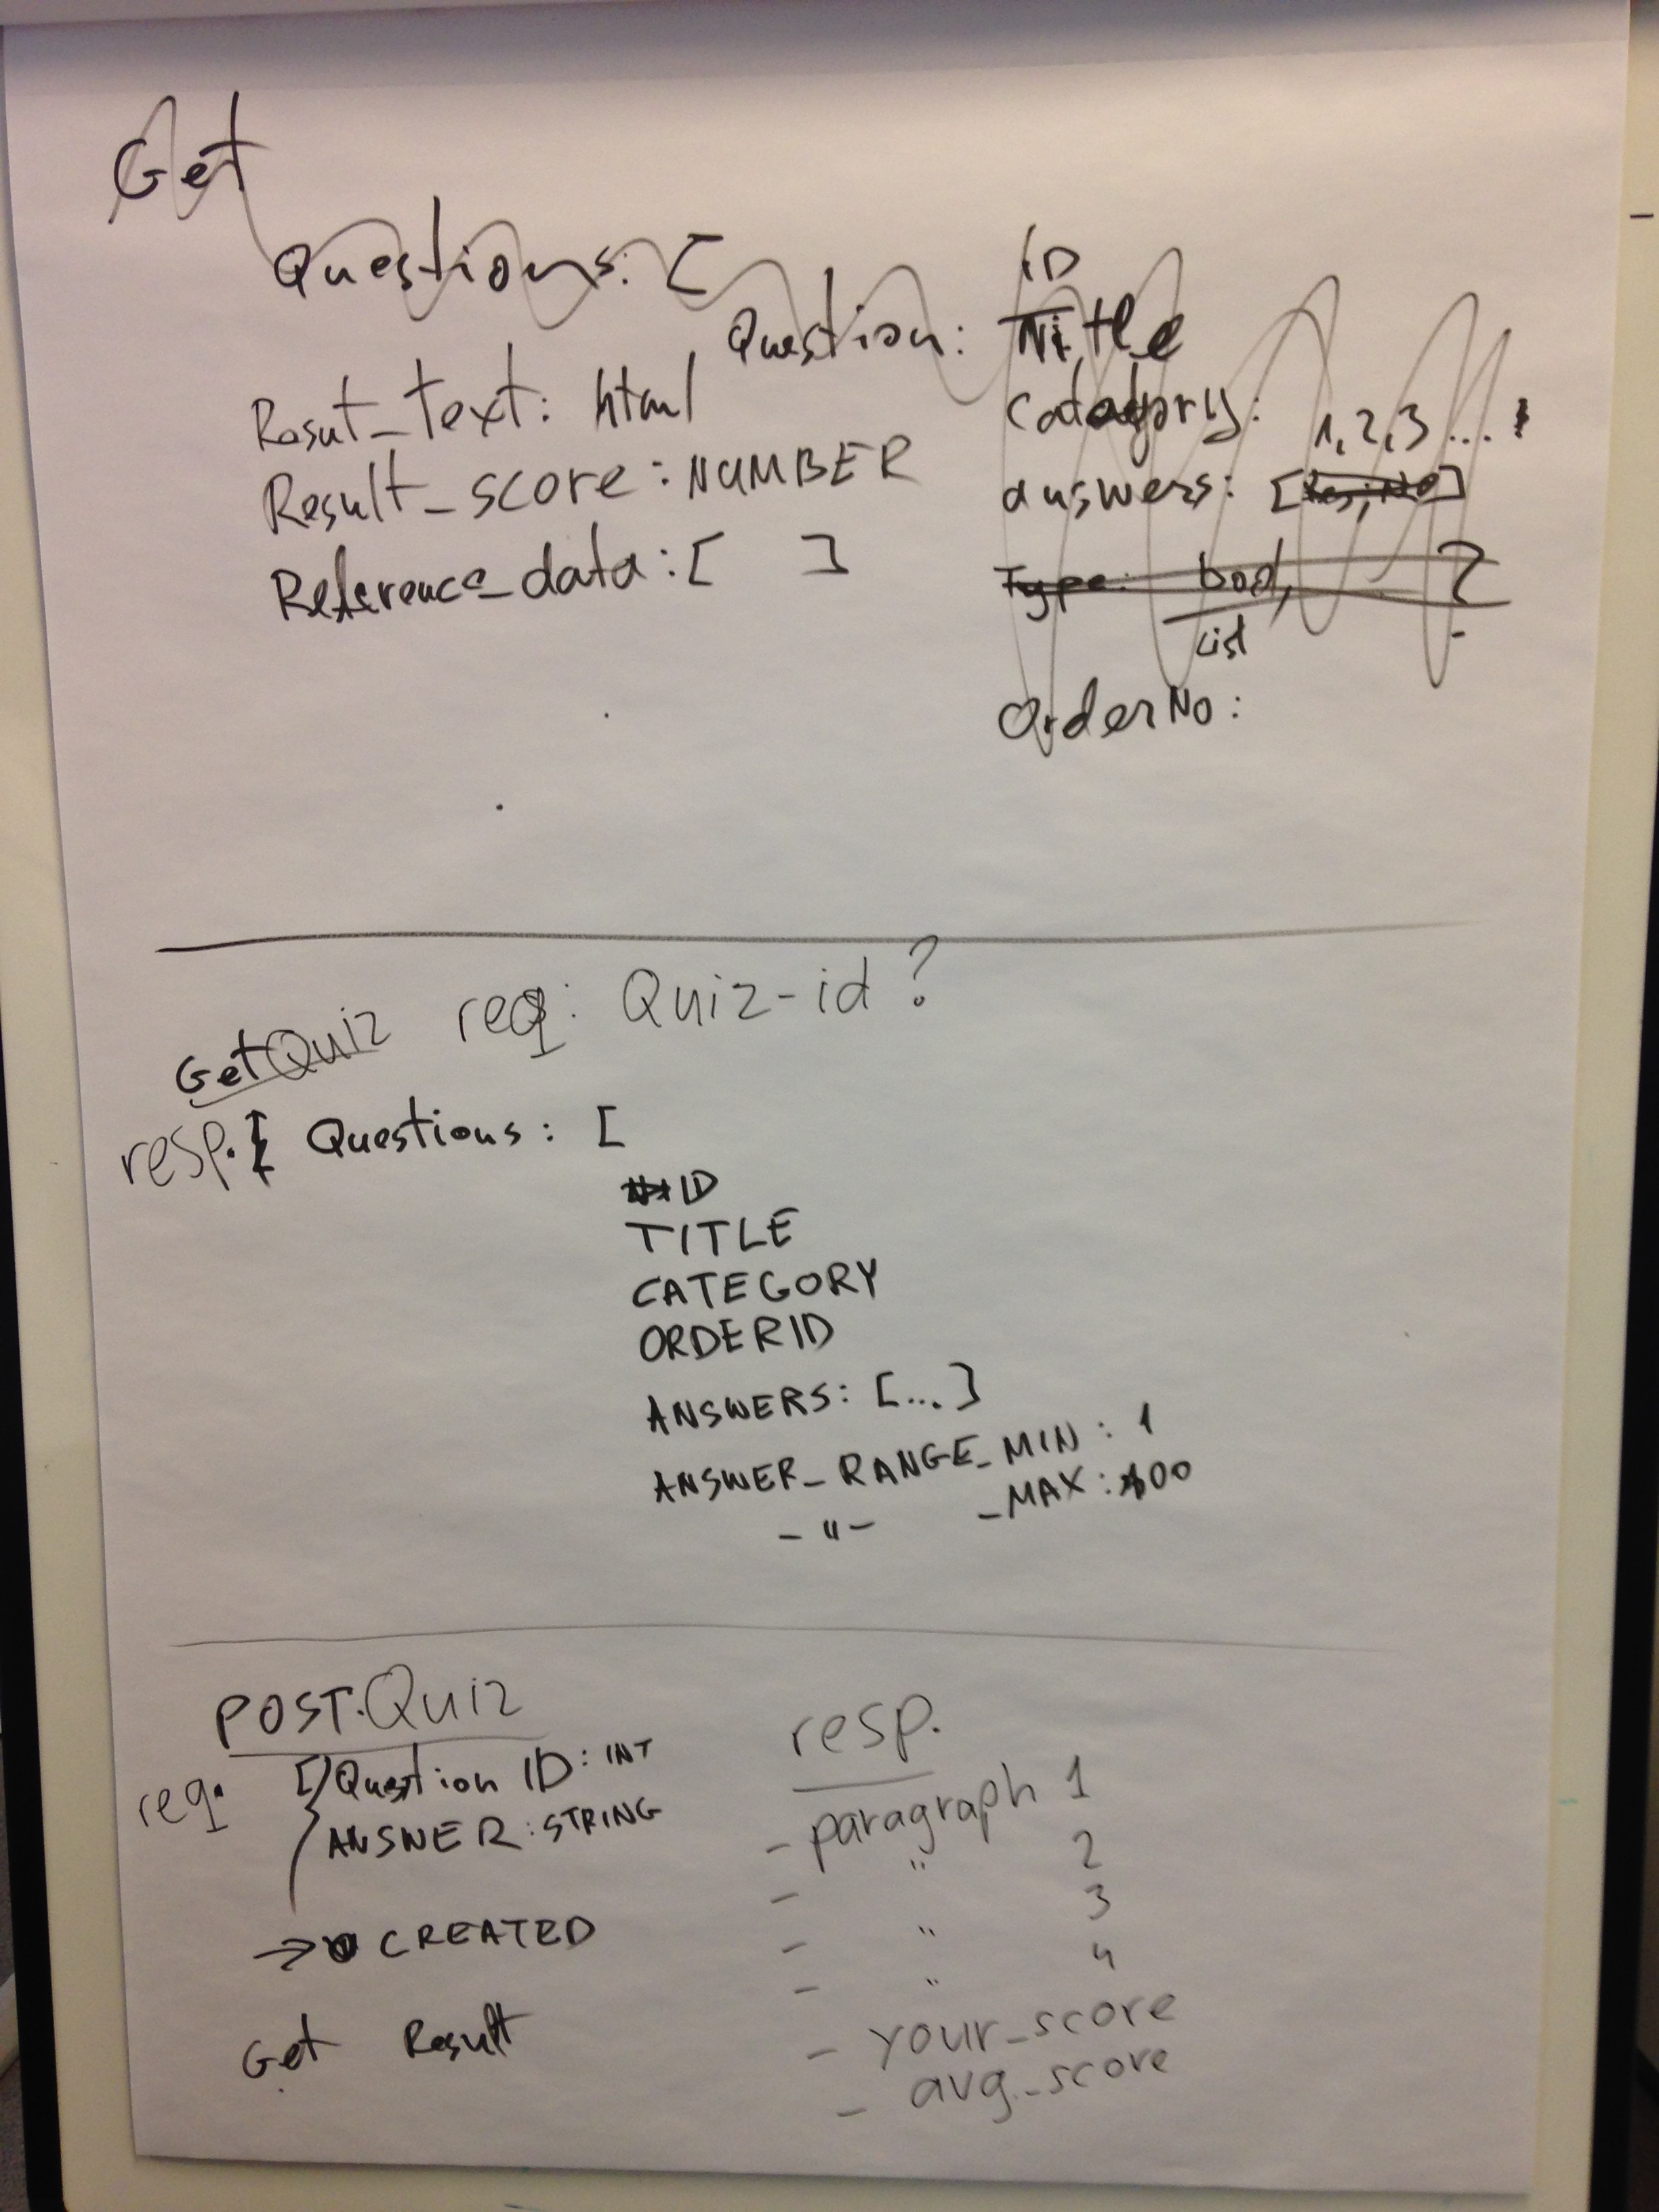 Get
Questions: [
Question: ID
Title
category: 1, 2, 3 ...
answers: [Yes, No]
Type: bool, ?
List
OrderNo:
Rosut_text: html
Result_score: NUMBER
Reference_data: [ ]
GetQuiz req: Quiz-id?
resp. { Questions: [
ID
TITLE
CATEGORY
ORDERID
ANSWERS: [...]
ANSWER_RANGE_MIN: 1
-"- _MAX: 100
POST.Quiz
req: [} Question ID: INT
ANSWER: STRING
→ CREATED
Get Result
resp.
- paragraph 1
- " 2
- " 3
- " 4
- your_score
- avg_score